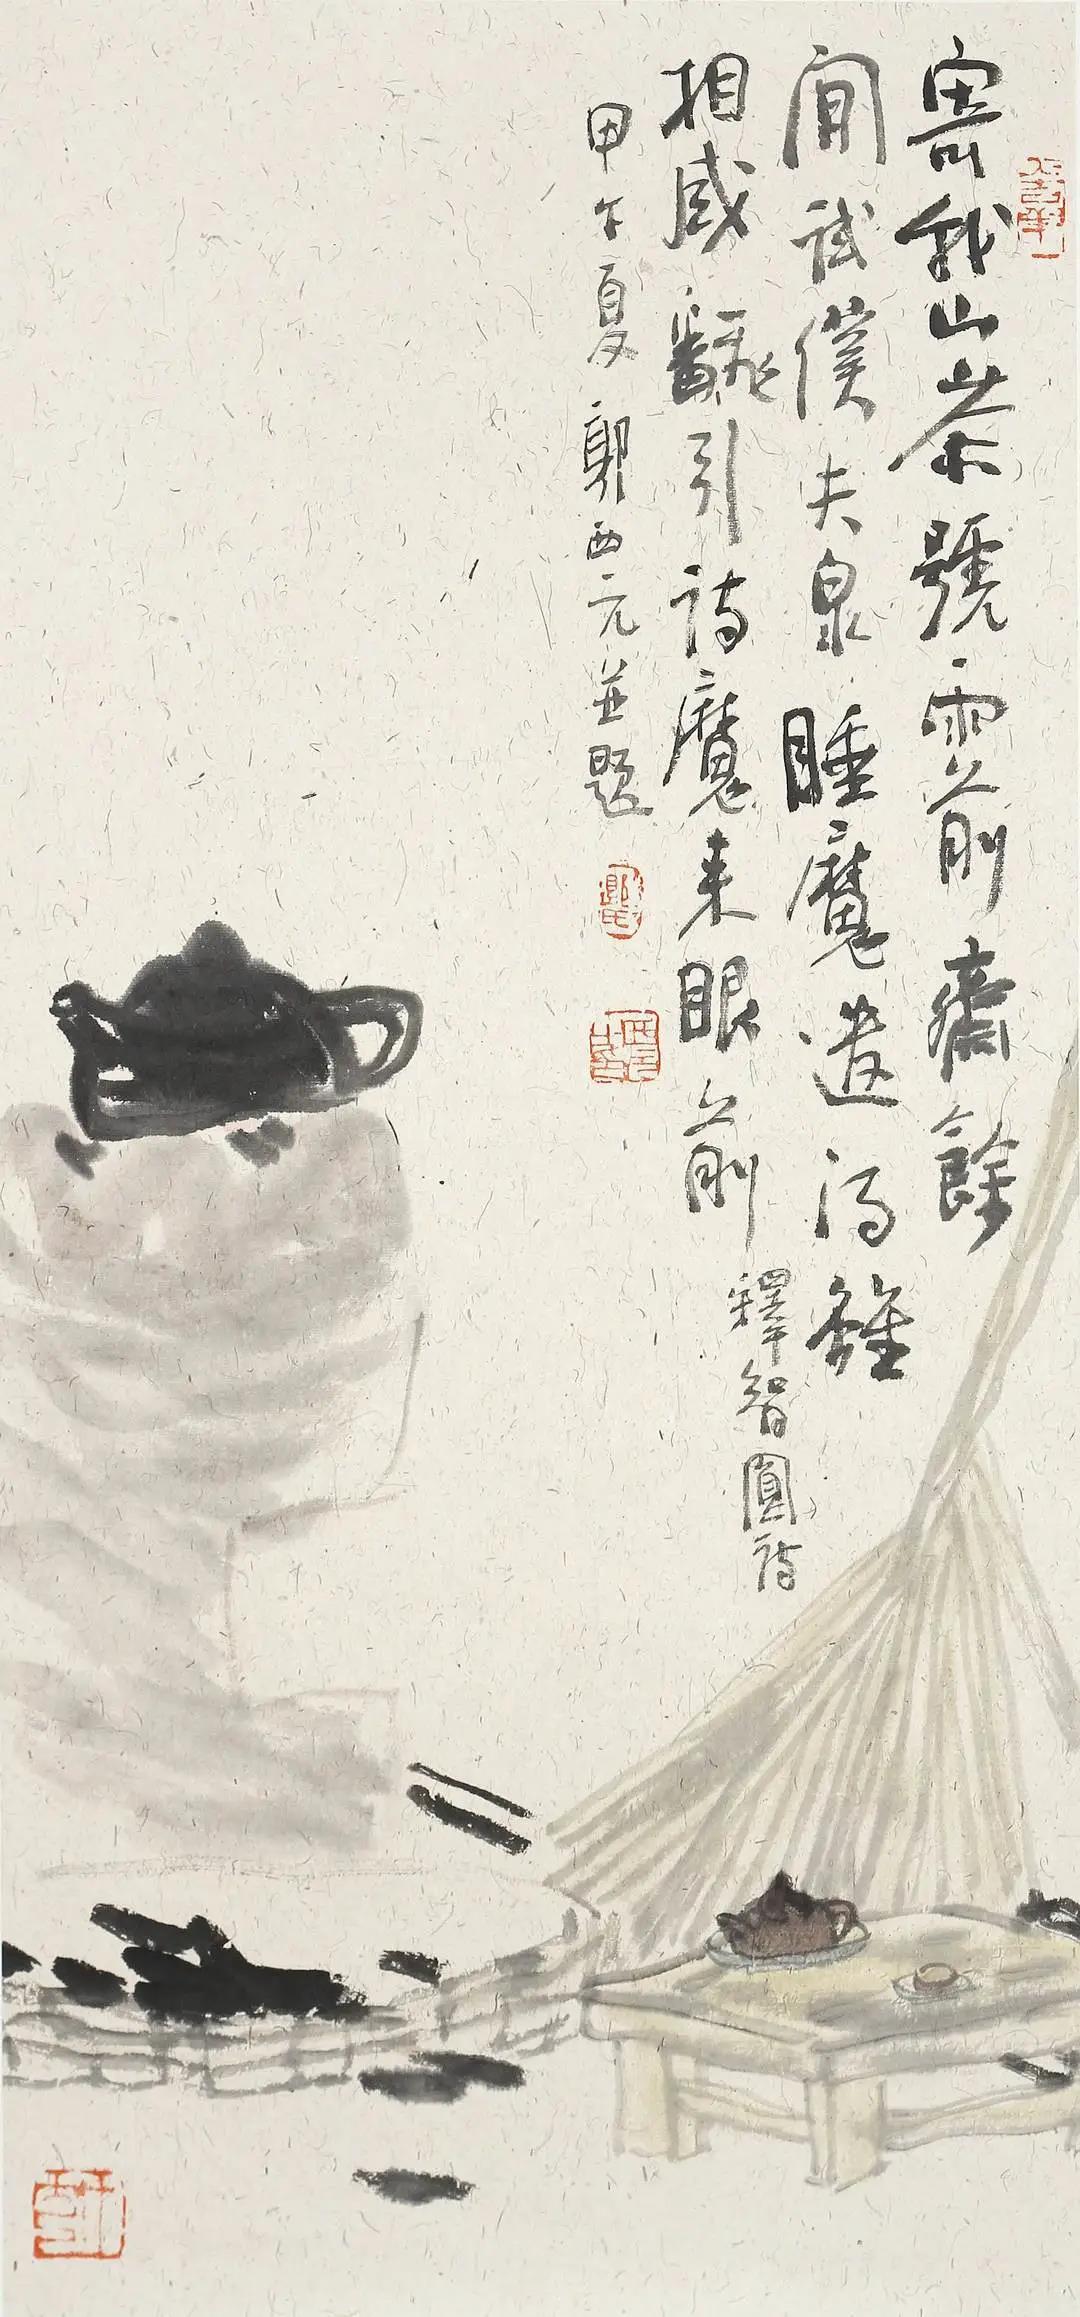 寄我山茶號雨前齋餘
閒試僕夫泉睡魔遣得雖
相感飜引詩魔來眼前
釋智圓詩
甲午夏郭西元並題